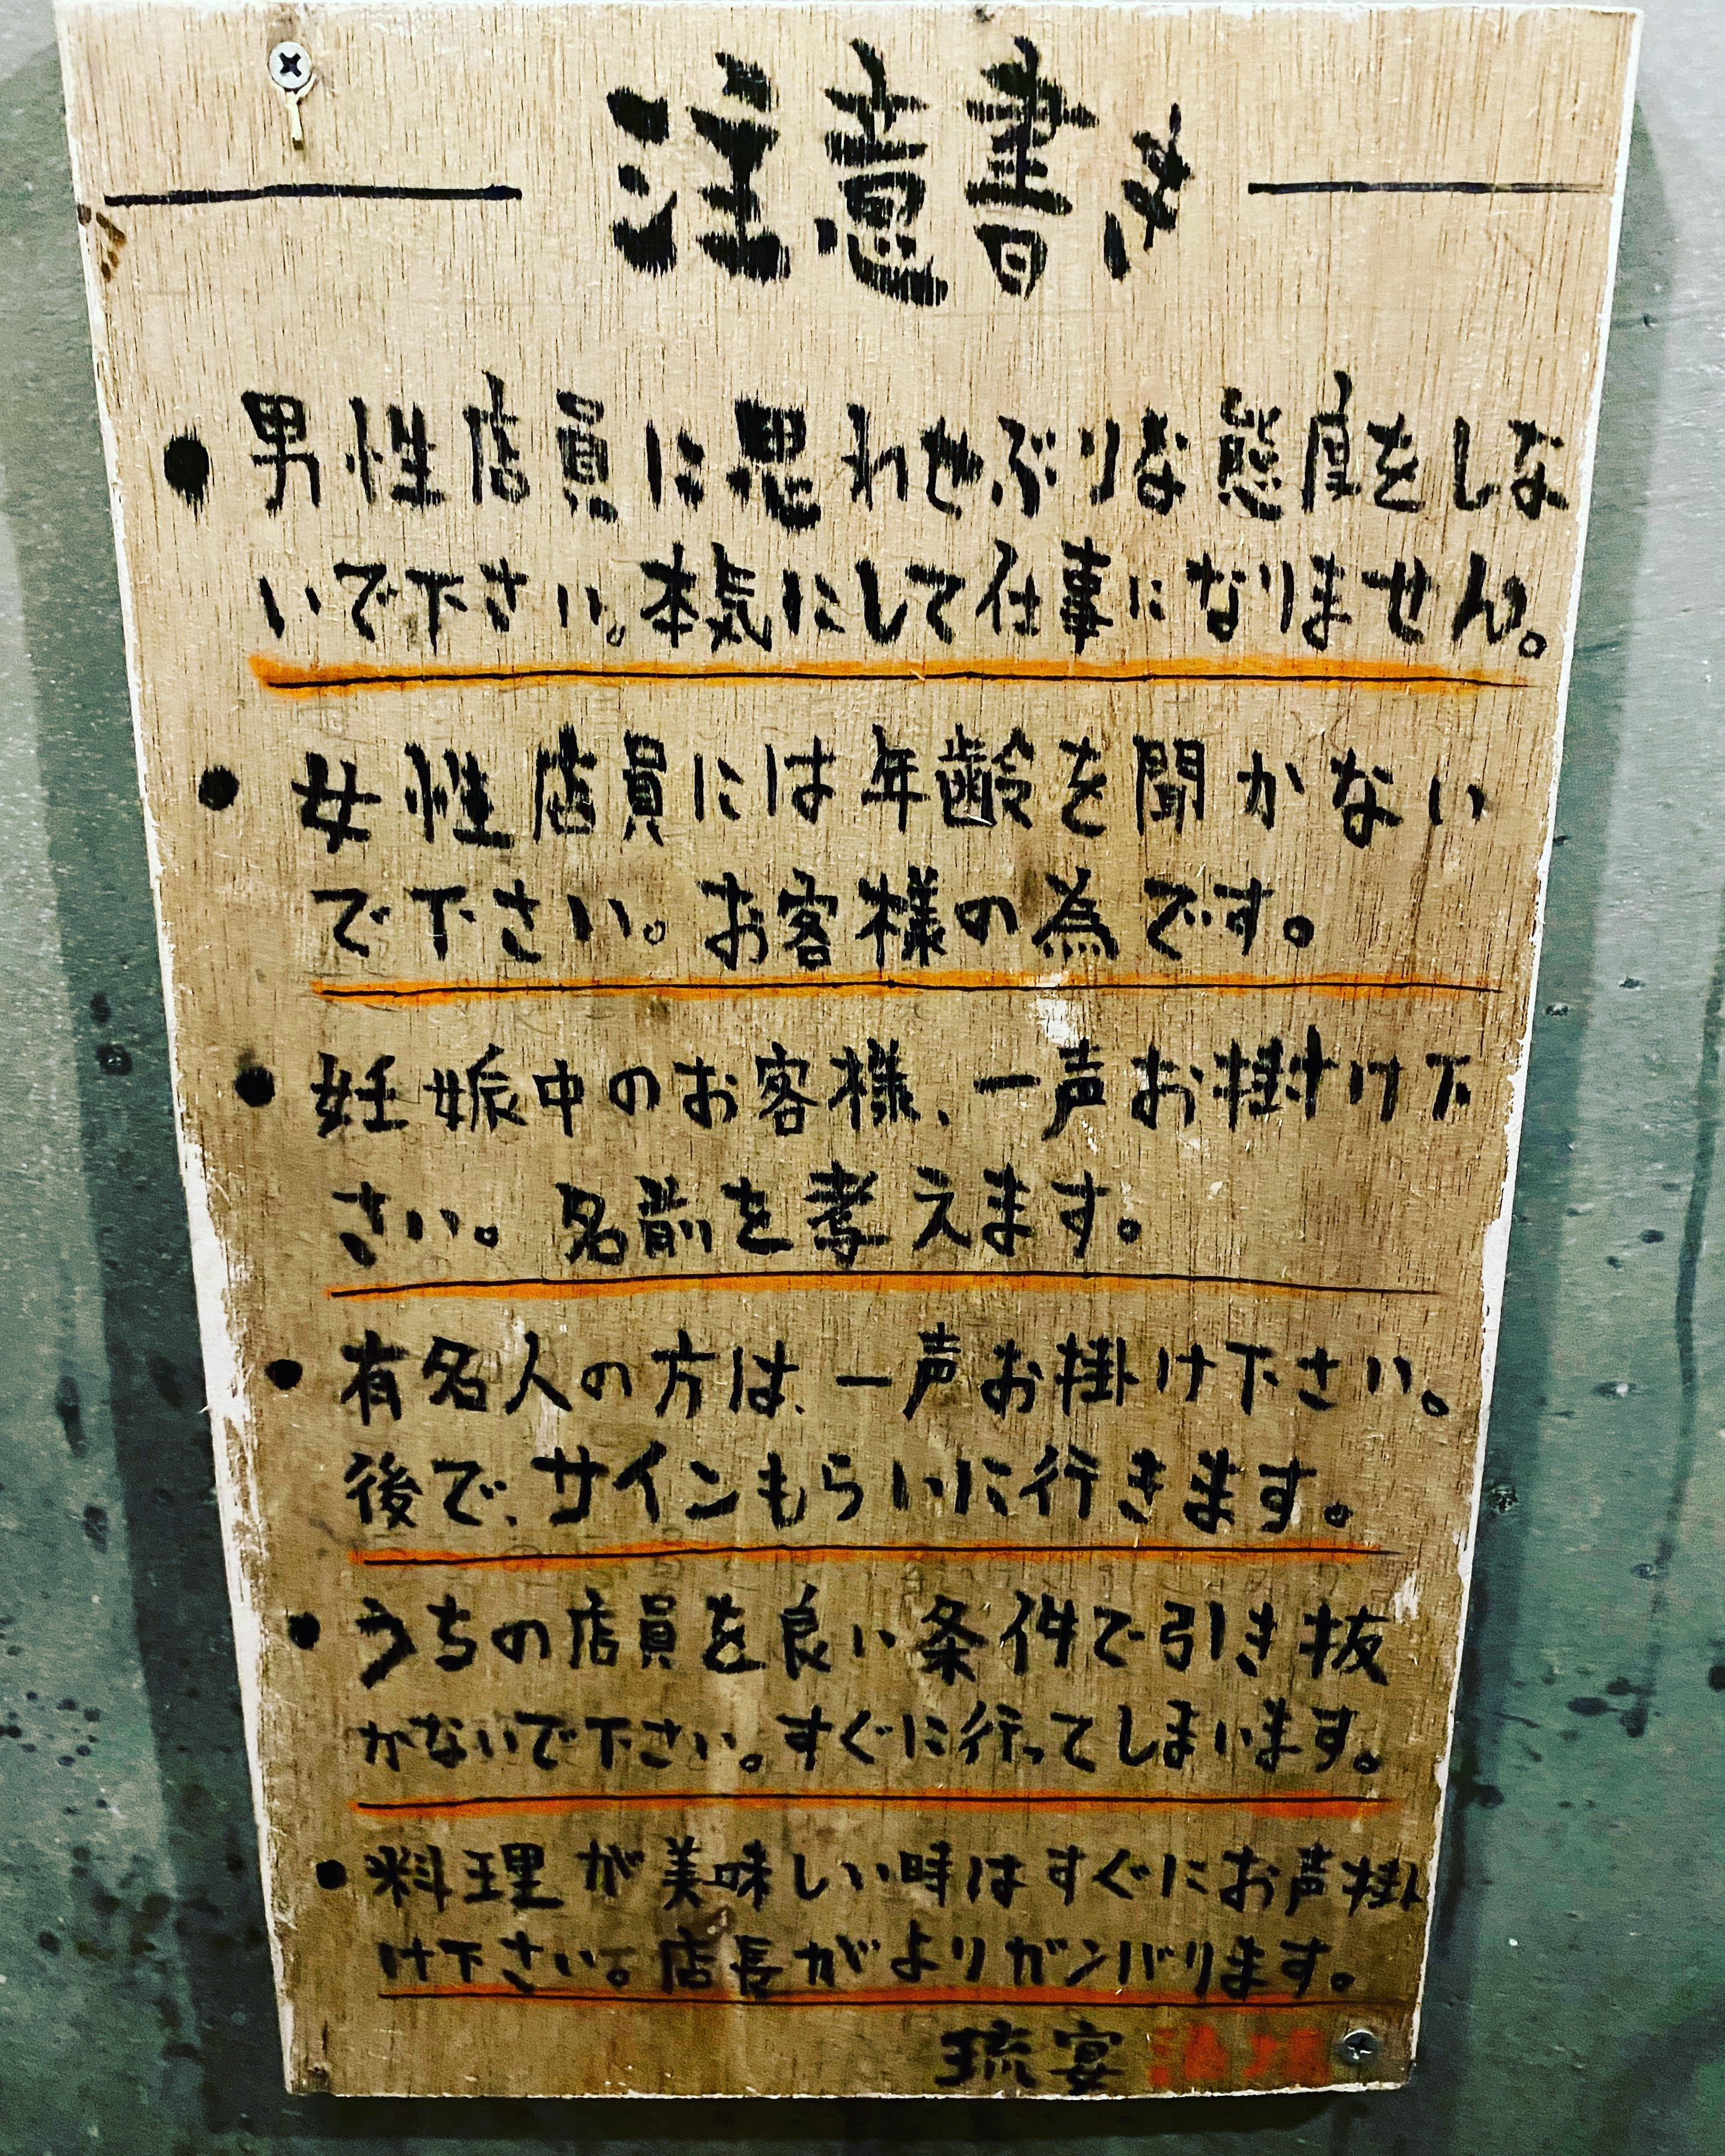 注意書き
● 男性店員に思わせぶりな態度をしな
いで下さい。本気にして仕事になりません。
● 女性店員には年齢を聞かない
で下さい。お客様の為です。
● 妊娠中のお客様、一声お掛け下
さい。名前を考えます。
● 有名人の方は、一声お掛け下さい。
後で、サインもらいに行きます。
● うちの店員を良い条件で引き抜
かないで下さい。すぐに行ってしまいます。
● 料理が美味しい時はすぐにお声掛
け下さい。店長がよりガンバります。
琉宴